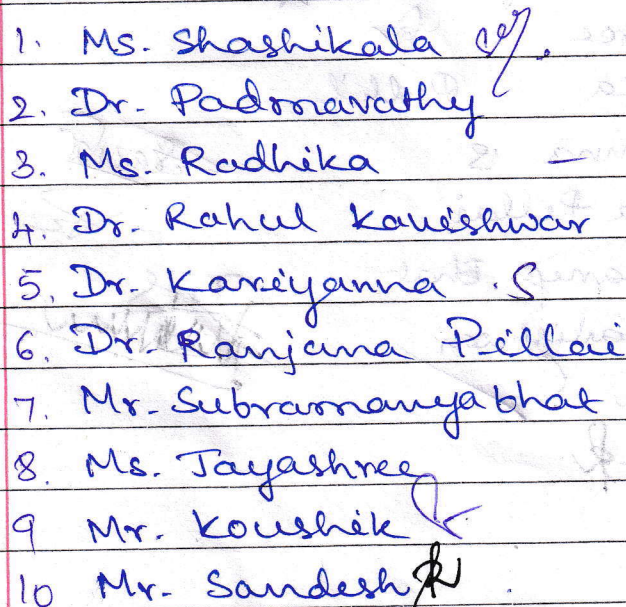 1. Ms. Shashikala
2. Dr. Padmavathy
3. Ms. Radhika –
4. Dr. Rahul Kaveishwar
5. Dr. Kariyanna .S
6. Dr. Ranjana Pillai
7. Mr. Subramanya bhat
8. Ms. Jayashree
9 Mr. Koushik
10 Mr. Sandesh